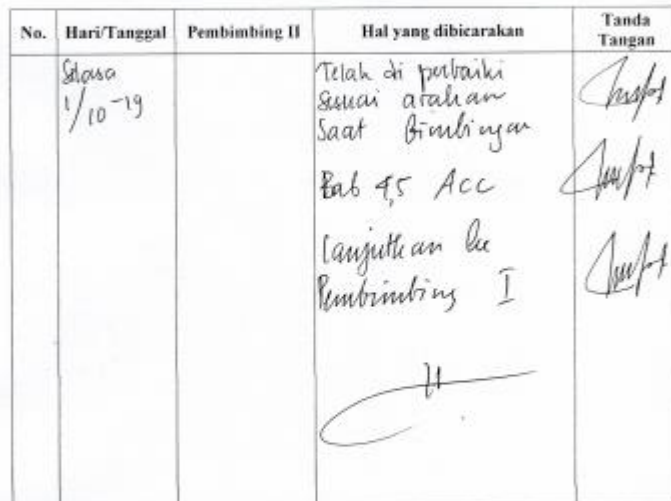 No. Hari/Tanggal Pembimbing II Hal yang dibicarakan Tanda Tangan
Selasa
1/10-19
Telah di perbaiki
Sesuai arahan
Saat Bimbingan
Bab 4,5 Acc
Lanjutkan ke
Pembimbing I